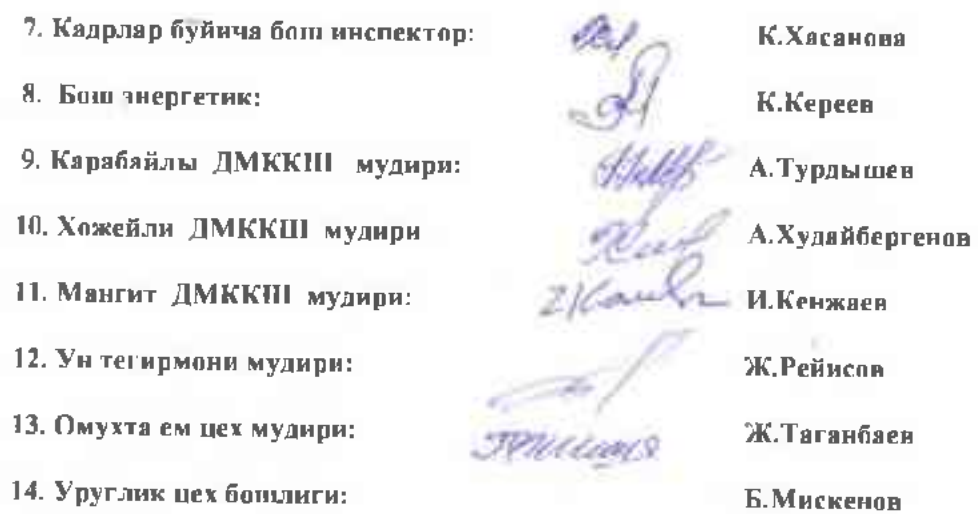 7. Кадрлар буйича бош инспектор: К.Хасанова
8. Бош энергетик: К.Кереев
9. Карабайлы ДМККШ мудири: А.Турдышев
10. Хожейли ДМККШ мудири А.Худайбергенов
11. Мангит ДМККШ мудири: И.Кенжаев
12. Ун тегирмони мудири: Ж.Рейисов
13. Омухта ем цех мудири: Ж.Таганбаев
14. Уруглик цех бошлиги: Б.Мискенов